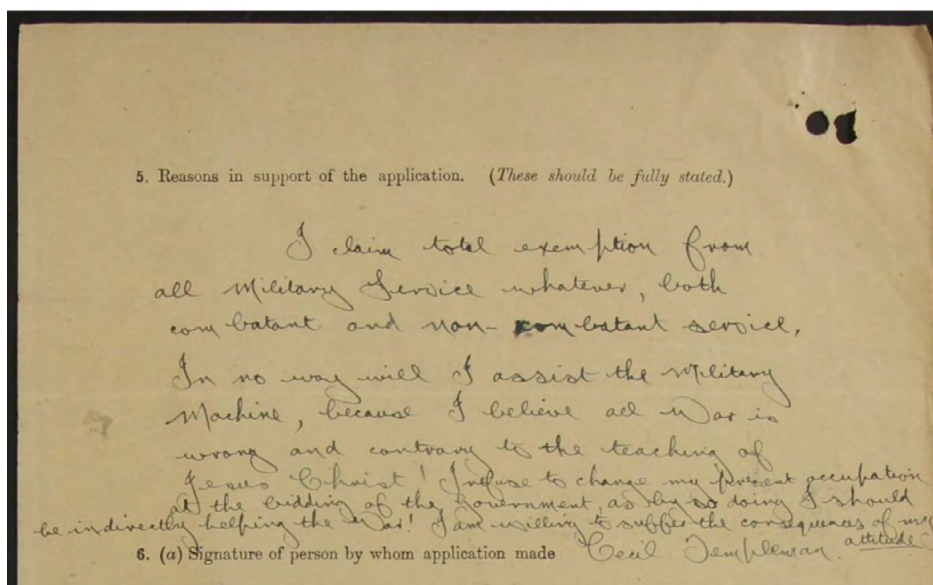 5. Reasons in support of the application. (These should be fully stated.)
I claim total exemption from
all Military Service whatever, both
combatant and non-combatant service.
In no way will I assist the Military
Machine, because I believe all War is
wrong and contrary to the teaching of
Jesus Christ! I refuse to change my present occupation
at the bidding of the Government, as by so doing I should
be indirectly helping the War! I am willing to suffer the consequences of my
attitude
6. (a) Signature of person by whom application made Cecil Templeman